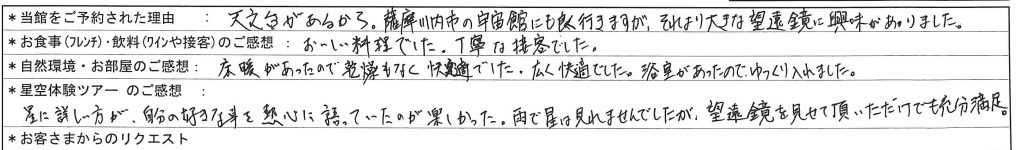 *当館をご予約された理由 : 天文台があるから。薩摩川内市の宇宙館にも良く行きますが、それより大きな望遠鏡に興味がありました。
*お食事(フレンチ)・飲料(ワインや接客)のご感想 : おいしい料理でした。丁寧な接客でした。
*自然環境・お部屋のご感想 : 床暖があったので乾燥もなく快適でした。広く快適でした。浴室があったのでゆっくり入れました。
*星空体験ツアー のご感想 :
星に詳しい方が、自分の好きな事を熱心に語っていたのが楽しかった。雨で星は見れませんでしたが、望遠鏡を見せて頂いただけでも充分満足。
*お客さまからのリクエスト